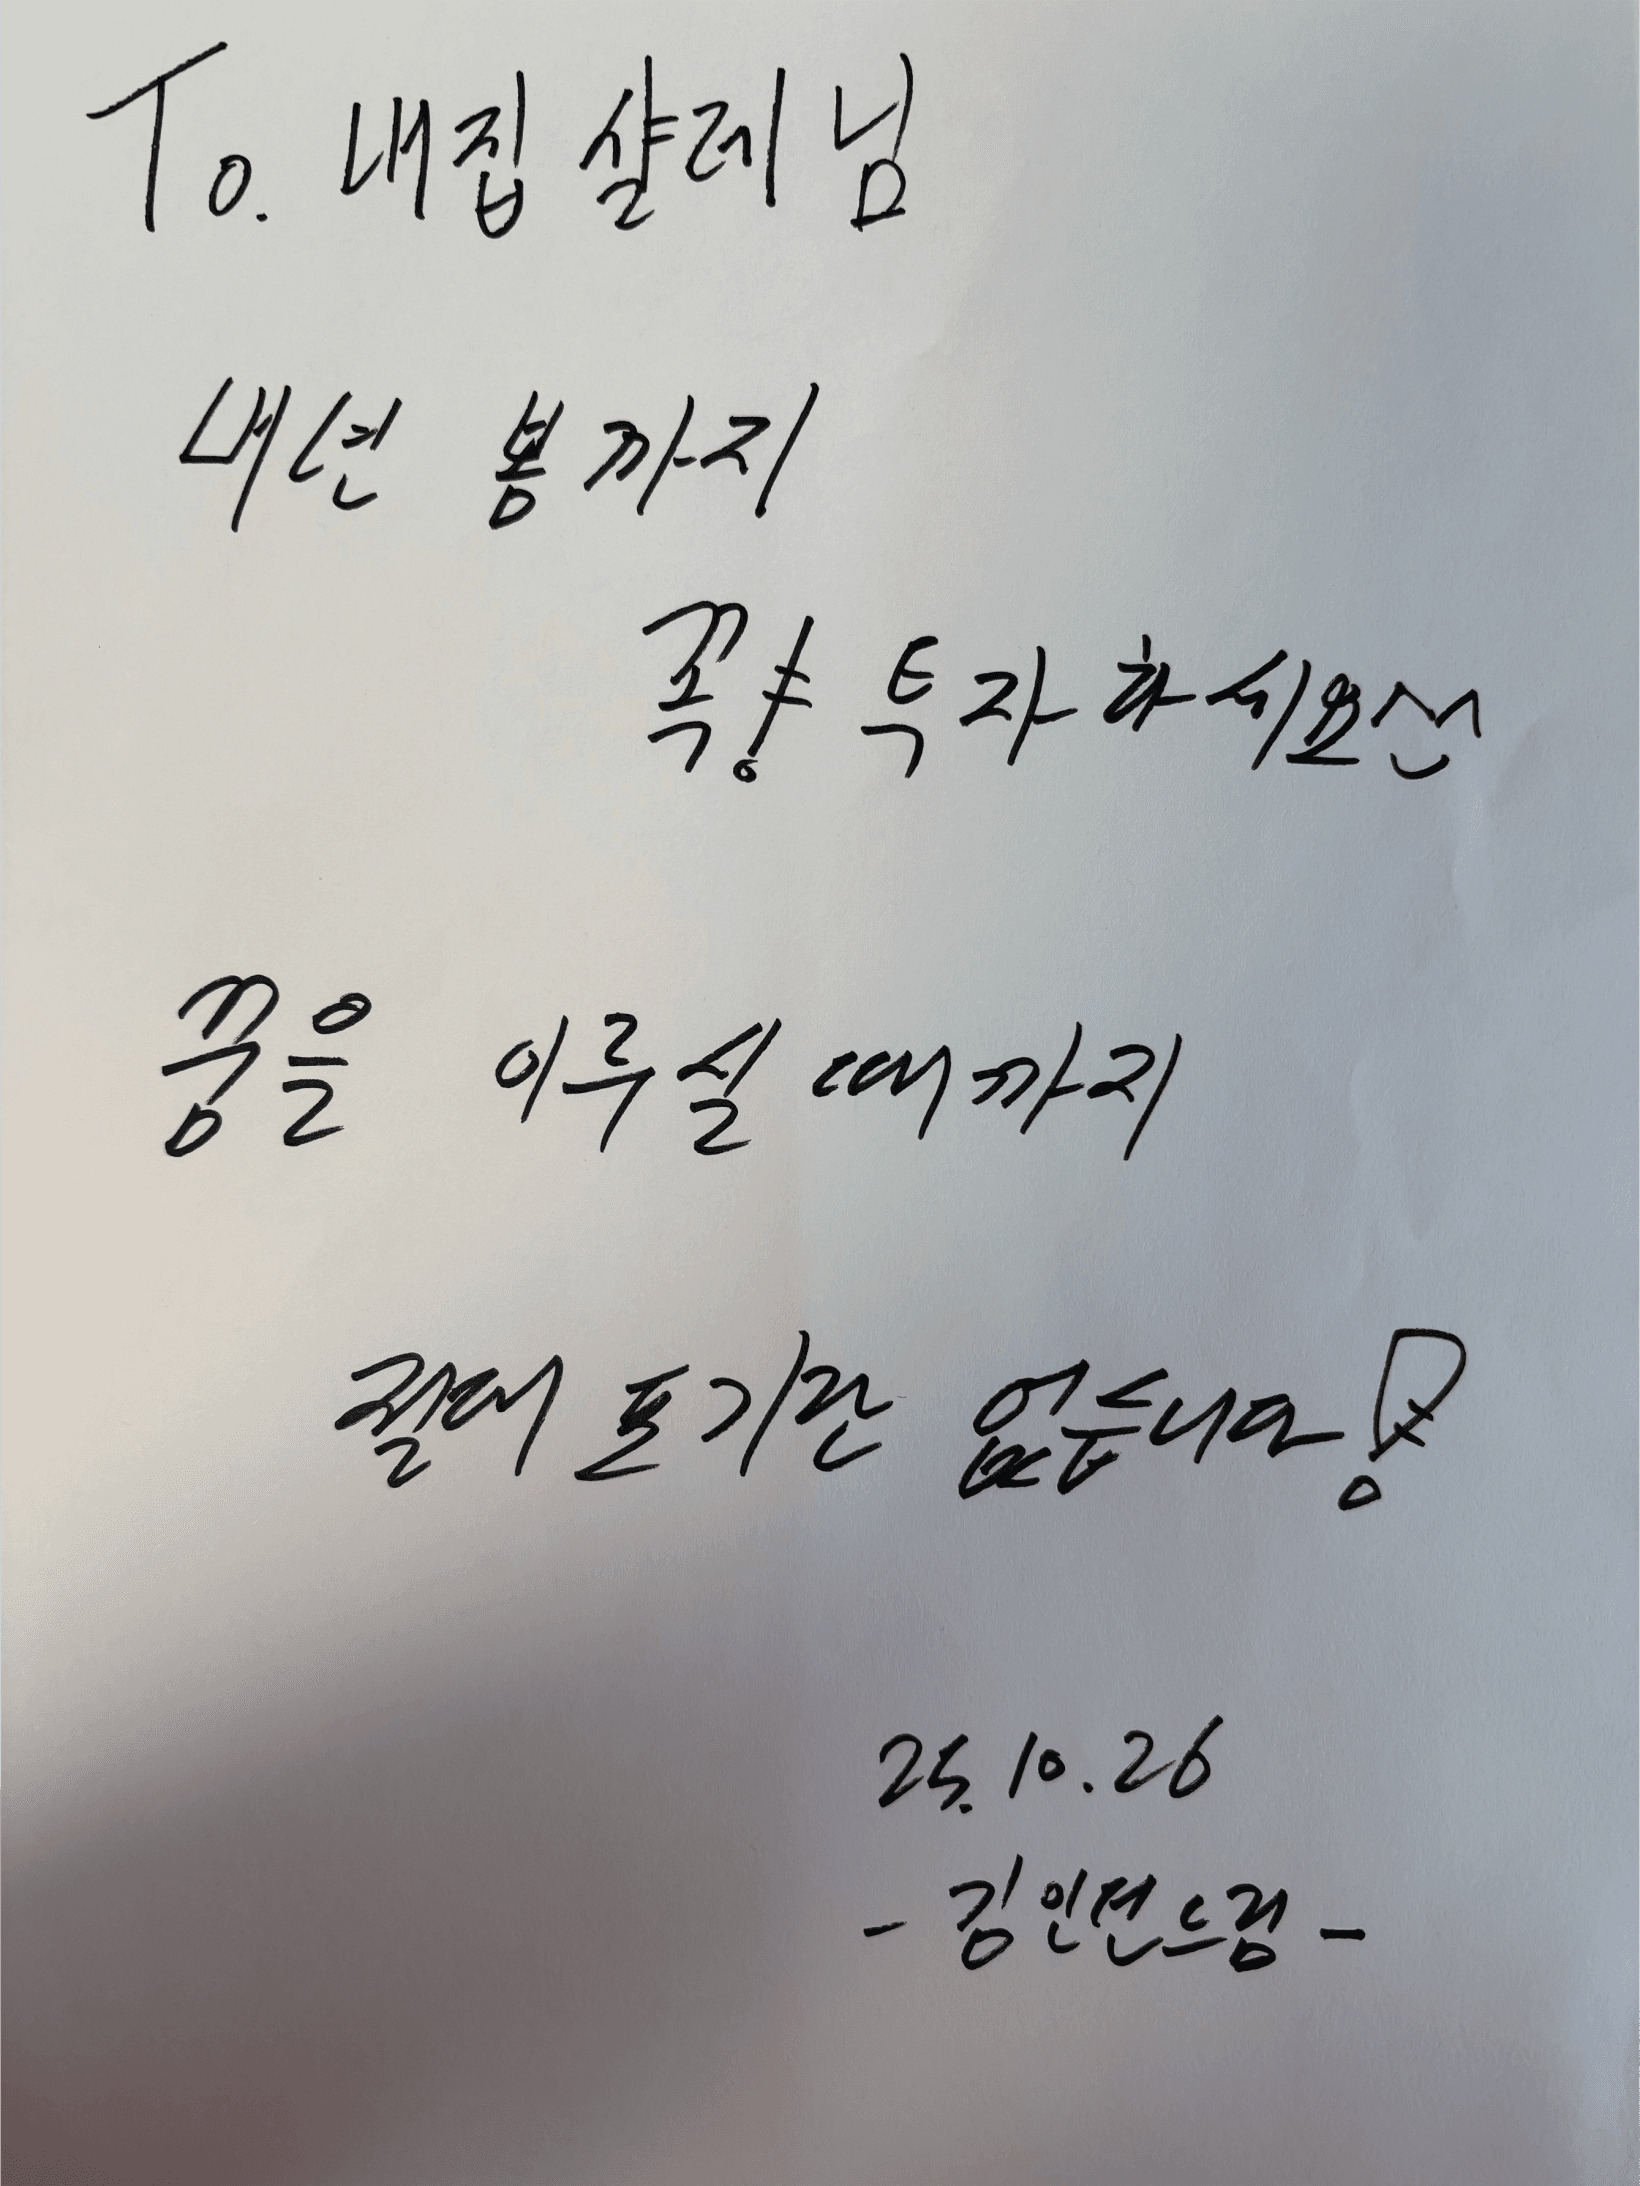 To. 내집 샬레 님
내년 봄까지
꼭꼭 투자하세요^^
꿈을 이루실 때까지
절대 포기란 없습니다!
25. 10. 26
- 김인선드림 -